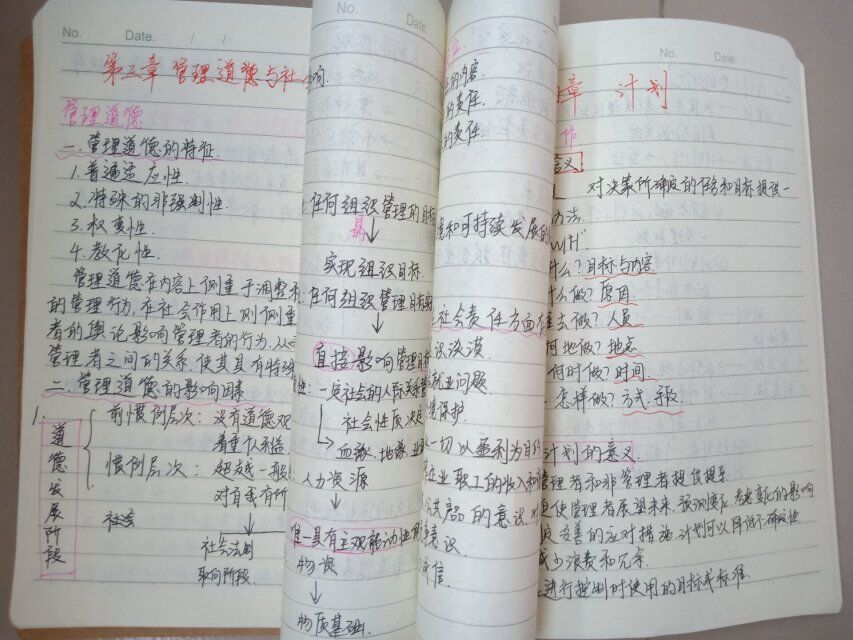 No. Date. / /
第三章 管理道德与社
管理道德
一. 管理道德的特征.
1. 普遍适应性.
2. 特殊的非强制性.
3. 权变性.
4. 教化性.
管理道德在内容上侧重于调整
的管理行为, 在社会作用上则侧重
者的舆论影响管理者的行为, 从
管理者之间的关系, 使其具有特殊
二. 管理道德的影响因素
1.
道德发展阶段
前惯例层次: 没有道德观
看重个人利益.
惯例层次: 超越一般
对自我有所
社会法制
取向阶段.
No. Date
响
任何组织管理的目标
实现组织目标.
任何组织管理目标
直接影响管理目标
性: 一定社会的人际关系
社会性质决定
血缘. 地缘. 业
人力资源
唯一具有主观能动性
物误
物质基础.
Date.
的内容.
的责任.
的责任.
境和可持续发展的
社会责任方面有
识淡漠
就业问题
境保护.
一切以盈利为目的
企业职工的收入和
产品的意识.
意识
诚信.
No. Date / /
章 计划
作
含义
对决策所确定的任务和目标提供一
方法.
什么? 目标与内容
什么做? 原因
去做? 人员
何地做? 地点
何时做? 时间
怎样做? 方式、手段.
计划的意义
管理者和非管理者提供指导.
促使管理者展望未来, 预测变化, 考虑变化的影响
妥善的应对措施, 计划可以降低不确定性.
减少浪费和冗余.
进行控制时使用的目标或标准